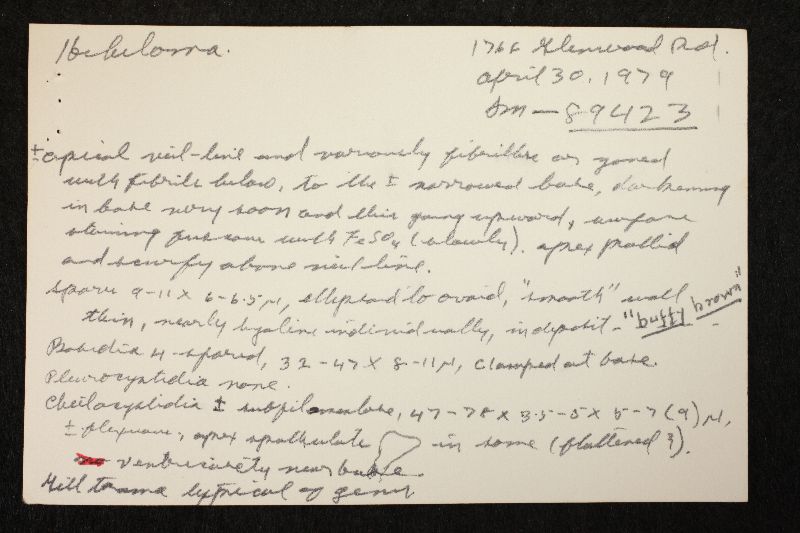 Hebeloma.
1766 Glenwood Rd.
April 30, 1979
Sm – 89423
± apical veil-line and variously fibrillose or zoned
with fibrils below, to the ± narrowed base, darkening
in base very soon and this going upward, surface
staining fuscous with FeSO4 (slowly). apex pallid
and scurfy above veil line.
spores 9-11 X 6-6.5 µ, ellipsoid to ovoid, "smooth" wall
thin, nearly hyaline individually, in deposit - "buffy brown"
Basidia 4-spored, 32-47 X 8-11 µ, clamped at base.
Pleurocystidia none.
Cheilocystidia ± subfilamentose, 47-78 X 3.5-5 X 5-7 (9) µ,
± flexuous, apex spathulate in some (flattened ?).
no ventricosity near base.
Gill trama typical of genus